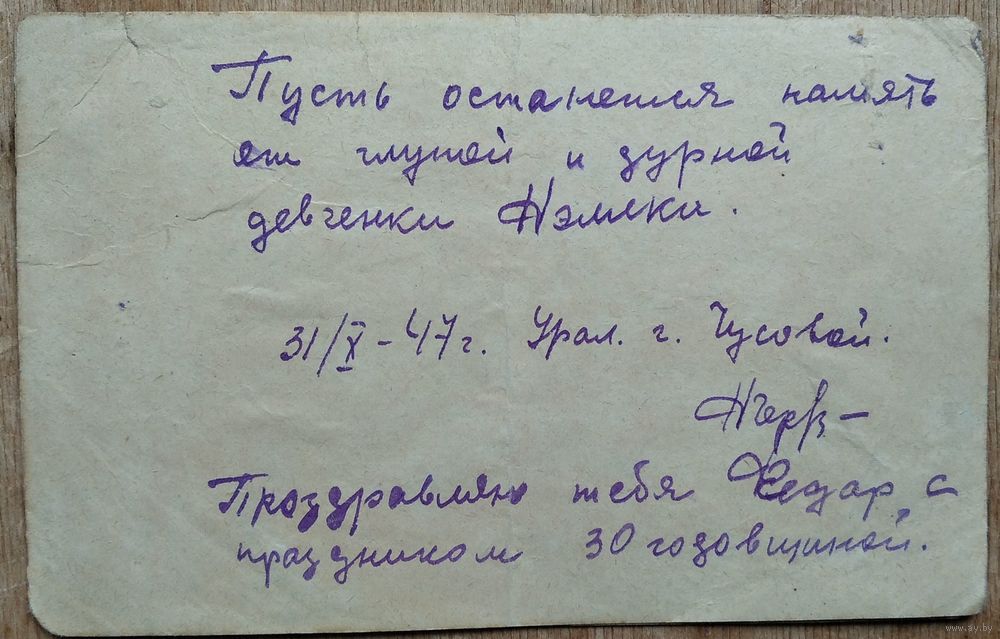 Пусть останется память
от глупой и дурной
девченки Нэлски.
31/X - 47 г. Урал. г. Чусовой.
Проздравляю тебя Федар с
праздником 30 годовщиной.
www.ay.by